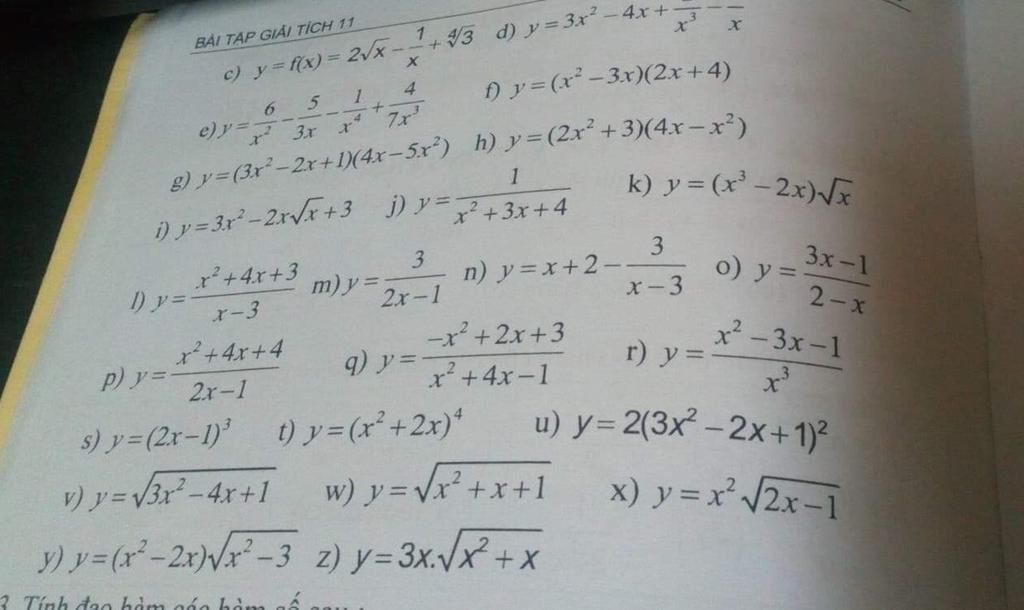 BÀI TẬP GIẢI TÍCH 11
c) y = f(x) = 2√x − 1/x + ∜3 d) y = 3x² − 4x +
e) y = 6/x² − 5/(3x) − 1/x⁴ + 4/(7x³) f) y = (x² − 3x)(2x + 4)
g) y = (3x² − 2x + 1)(4x − 5x²) h) y = (2x² + 3)(4x − x²)
i) y = 3x² − 2x√x + 3 j) y = 1/(x² + 3x + 4) k) y = (x³ − 2x)√x
l) y = (x² + 4x + 3)/(x − 3) m) y = 3/(2x − 1) n) y = x + 2 − 3/(x − 3) o) y = (3x − 1)/(2 − x)
p) y = (x² + 4x + 4)/(2x − 1) q) y = (−x² + 2x + 3)/(x² + 4x − 1) r) y = (x² − 3x − 1)/x³
s) y = (2x − 1)³ t) y = (x² + 2x)⁴ u) y = 2(3x² − 2x + 1)²
v) y = √(3x² − 4x + 1) w) y = √(x² + x + 1) x) y = x²√(2x − 1)
y) y = (x² − 2x)√(x² − 3) z) y = 3x.√(x² + x)
3. Tính đạo hàm các hàm số sau :